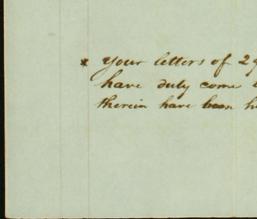 * Your letters of 29
have duly come
therein have been h